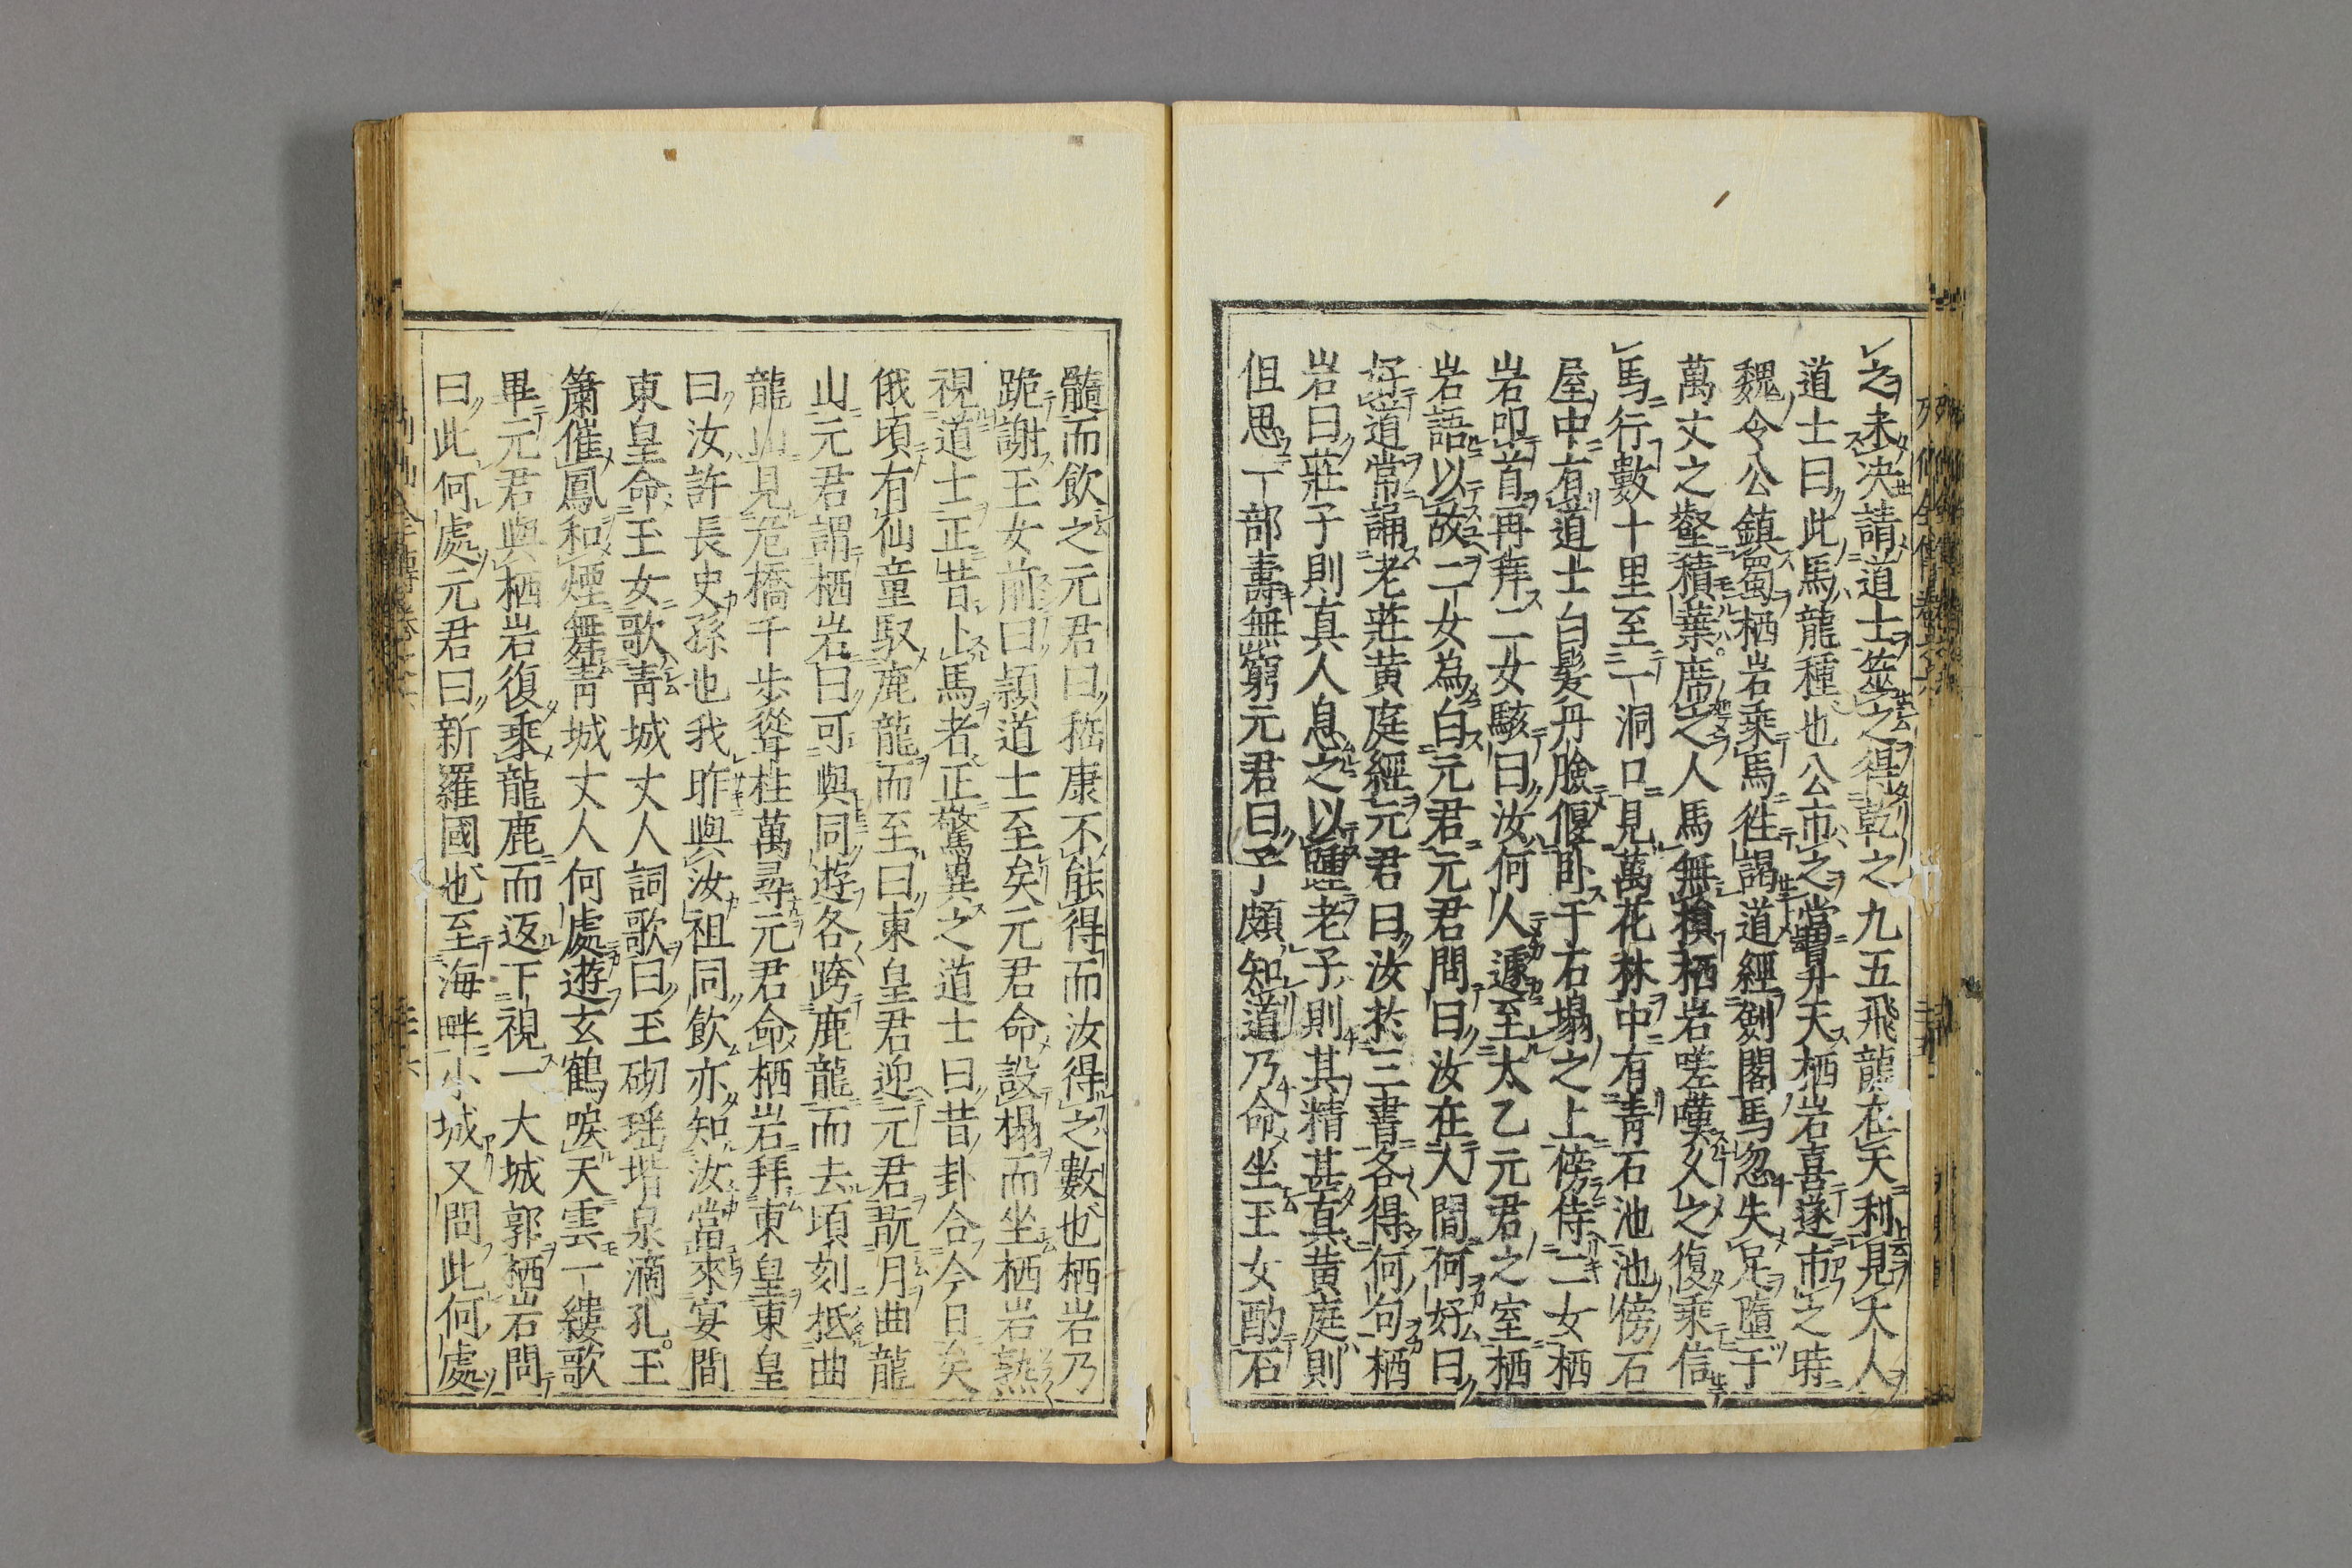 之未决請道士筮之得乾之九五飛龍在天利見大人
道士曰此馬龍種也公市之當昇天栖岩喜遂市之時
魏令公鎮蜀栖岩乘馬徃謁道經劍閣馬忽失足墮于
萬丈之壑積葉席之人馬無損栖岩嗟嘆久之復乘信
馬行數十里至一洞口見萬花林中有青石池池傍石
屋中有道士白髮丹臉偃卧于石塌之上傍侍二女栖
岩叩首再拜二女駭曰汝何人遽至太乙元君之室栖
岩語以故二女為白元君元君問曰汝在人間何好曰
好道常誦老莊黄庭經元君曰汝於三書各得何句栖
岩曰莊子則真人息之以踵老子則其精甚真黄庭則
但思一部壽無窮元君曰子頗知道乃命坐玉女酌石
髓而飲之元君曰嵇康不能得而汝得之數也栖岩乃
跪謝玉女前曰頴道士至矣元君命設榻而坐栖岩熟
視道士正昔卜馬者正驚異之道士曰昔卦合今日矣
俄頃有仙童馭鹿龍而至曰東皇君迎元君翫月曲龍
山元君謂栖岩曰可與同遊各跨鹿龍而去頃刻抵曲
龍山見危橋千步聳柱萬尋元君命栖岩拜東皇東皇
曰汝許長史孫也我昨與汝祖同飲亦知汝當來宴間
東皇命玉女歌青城丈人詞歌曰玉砌瑶堦泉滴孔玉
簫催鳳和煙舞青城丈人何處遊玄鶴唳天雲一縷歌
畢元君與栖岩復乘龍鹿而返下視一大城郭栖岩問
曰此何處元君曰新羅國也至海畔小城又問此何處